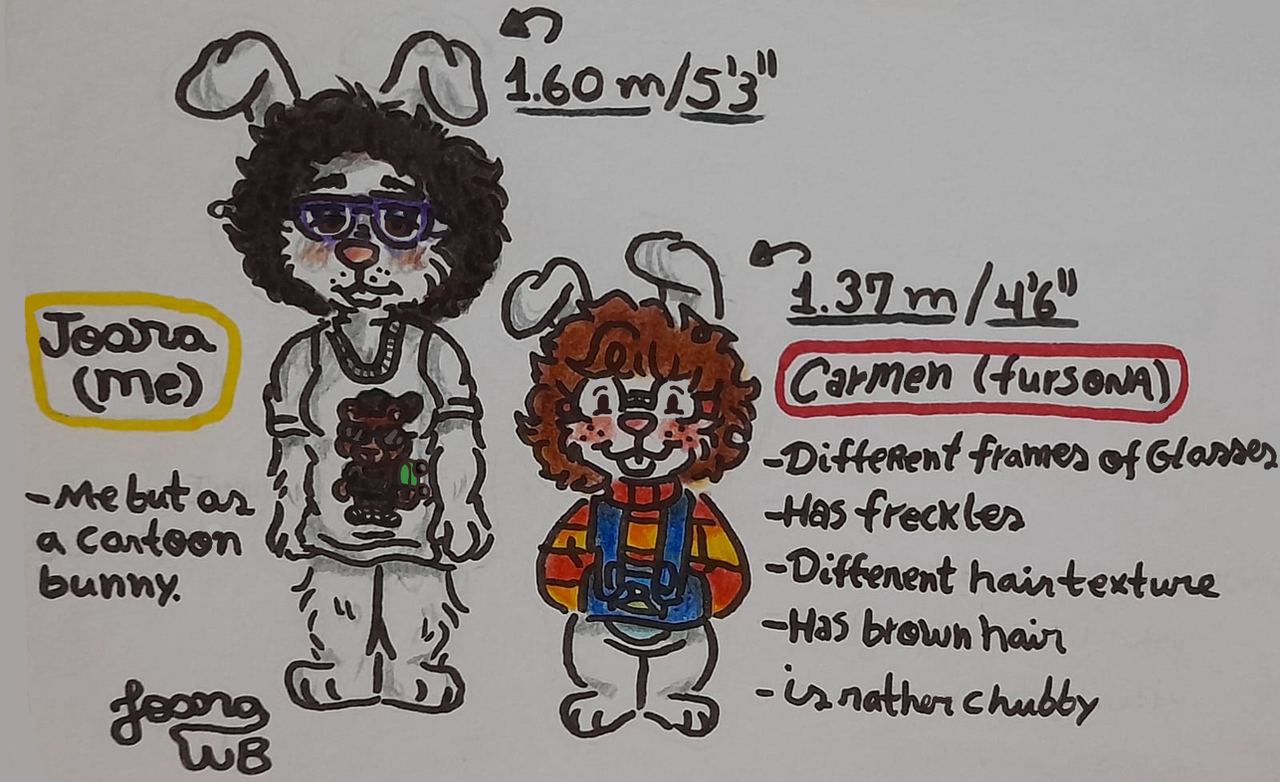 1.60 m/5'3"
1.37 m/4'6"
Joana
(me)
Carmen (fursona)
-Me but as
a cartoon
bunny.
-Different frames of Glasses
-Has freckles
-Different hair texture
-Has brown hair
-is rather chubby
Joana
WB